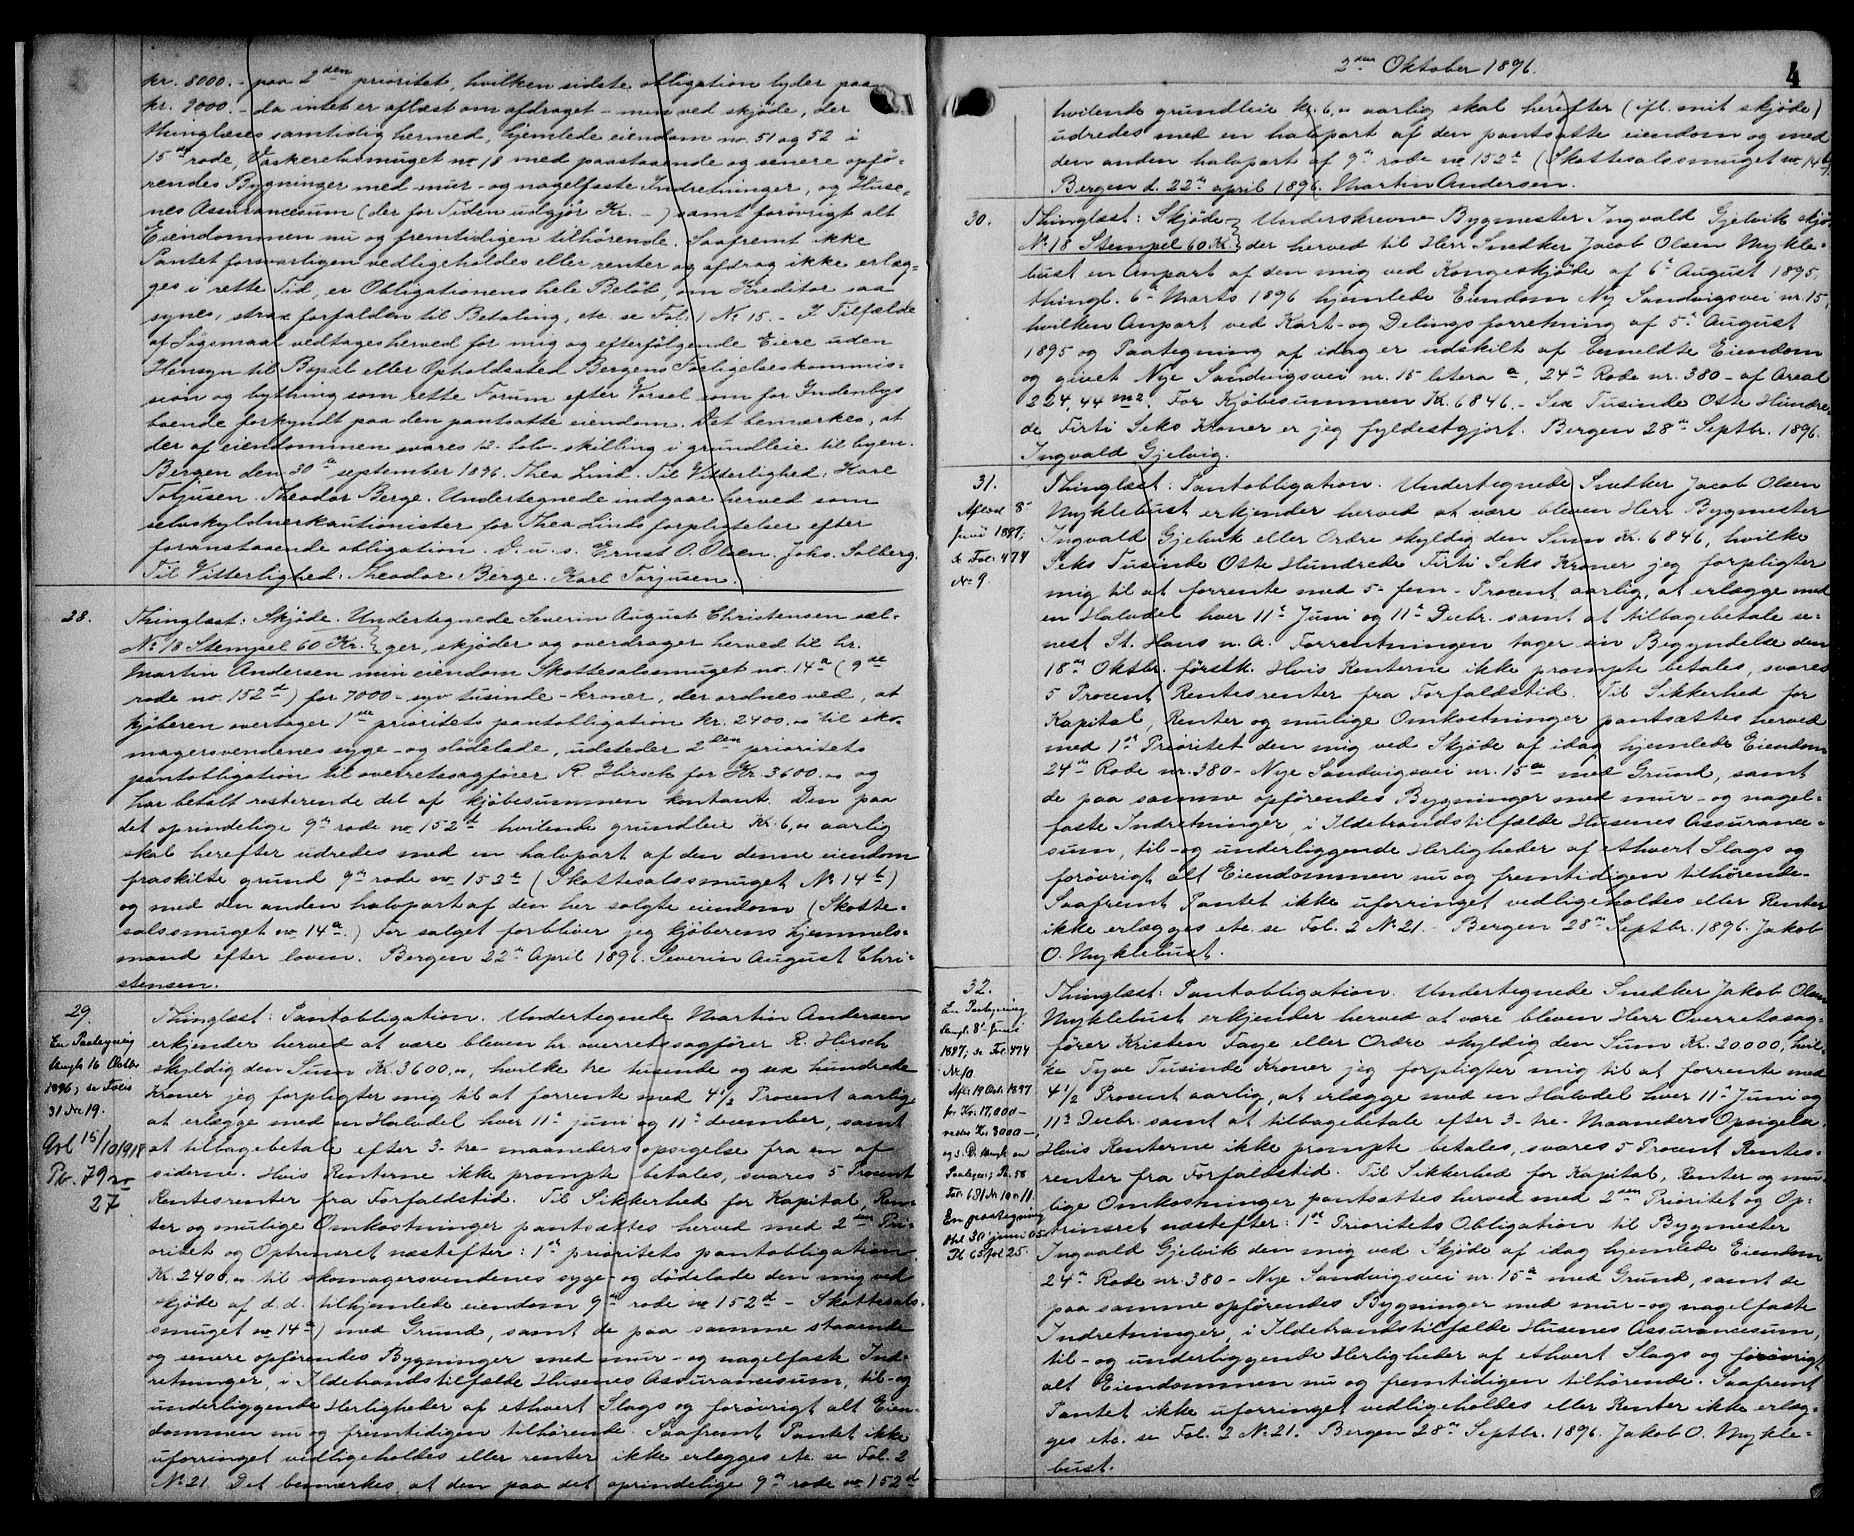 kr. 8000.- paa 2den prioritet, hvilken sidste obligation lyder paa
kr. 9000.- da intet er aflæst om afdraget - min ved skjøde, der
thinglæses samtidig hermed, hjemlede eiendom no. 51 og 52 i
15de rode, Vaskerelvsmuget no 18 med paastaaende og senere opfø-
rendes Bygninger med mur- og nagelfaste Indretninger, og Huse-
nes Assurancesum (der for Tiden udgjør Kr. - ) samt forøvrigt alt
Eiendommen nu og fremtidigen tilhørende. Saafremt ikke
Pantet forsvarligen vedligeholdes eller renter og afdrag ikke erlæg-
ges i rette Tid, er Obligationens hele Beløb, om Kreditor saa
synes, strax forfalden til Betaling, etc. se Fol. 1 No 15. - I Tilfælde
af Søgsmaal vedtages herved for mig og efterfølgende Eiere uden
Hensyn til Bopæl eller Opholdssted Bergens Forligelseskommis-
sion og bything som rette Forum efter Varsel som for Indenbys
boende forkyndt paa den pantsatte eiendom. Det bemærkes, at
der af eiendommen svares 12- tolv- skilling i grundleie til byen.
Bergen den 30te september 1896. Thea Lind. Til Vitterlighed: Karl
Torjusen. Theodor Berge. Undertegnede indgaar herved som
selvskyldnerkautionister for Thea Linds forpligtelser efter
foranstaaende obligation. D. u. s. Ernst O. Olsen. Johs. Solberg.
Til Vitterlighed: Theodor Berge. Karl Torjusen.
28. Thinglæst: Skjøde. Undertegnede Severin August Christensen sæl-
No 18 Stempel 60 Kr. ger, skjøder og overdrager herved til hr.
Martin Andersen min eiendom Skottesalssmuget no. 14a (9de
rode no. 152d) for 7000 - syv tusinde - kroner, der ordnes ved, at
kjøberen overtager 1ste prioritets pantobligation kr. 2400.,, til sko-
magersvendenes syge- og dødelade, udsteder 2den prioritets
pantobligation til overretssagfører R. Hirsch for Kr. 3600.,, og
har betalt resterende del af kjøbesummen kontant. Den paa
det oprindelige 9de rode no 152d hvilende grundleie Kr. 6,,, aarlig
skal herefter udredes med en halvpart af den denne eiendom
fraskilte grund 9de rode no 152e (Skottesalssmuget No 14b)
og med den anden halvpart af den her solgte eiendom (Skotte-
salssmuget no 14a.) For salget forbliver jeg kjøberens hjemmels-
mand efter loven. Bergen 22de April 1896. Severin August Chri-
stensen.
29.
En Paategning
thingl. 16 Oktbr.
1896; se Folio
31 No 19.
Avl 15/10 1918
Pb. 79 no
27
Thinglæst: Pantobligation. Undertegnede Martin Andersen
erkjender herved at være bleven hr overretssagfører R. Hirsch
skyldig den Sum Kr. 3600.,,, hvilke tre tusinde og sex hundrede
Kroner jeg forpligter mig til at forrente med 4 1/2 Procent aarlig,
at erlægge med en Halvdel hver 11te juni og 11te december, samt
at tilbagebetale efter 3- tre- maaneders opsigelse fra en af
siderne. Hvis Renterne ikke prompte betales, svares 5 Procent
Rentesrenter fra Forfaldstid. Til Sikkerhed for Kapital, Ren-
ter og mulige Omkostninger pantsættes herved med 2den Pri-
oritet og Oprinsret næstefter: 1ste prioritets pantobligation
Kr. 2400.,, til skomagersvendenes syge- og dødelade den mig ved
skjøde af d. d. tilhjemlede eiendom 9de rode no 152d - Skottesals-
smuget no 14a) med Grund, samt de paa samme staaende
og senere opførendes Bygninger med mur- og nagelfaste Ind-
retninger, i Ildebrandstilfælde Husenes Assurancesum, til- og
underliggende Herligheder af ethvert Slags og forøvrigt alt Eien-
dommen nu og fremtidigen tilhørende. Saafremt Pantet ikke
uforringet vedligeholdes eller renter ikke erlægges etc. se Fol. 2
No 21. Det bemærkes, at den paa det oprindelige 9de rode no 152d
2den Oktober 1896.
4
hvilende grundleie kr. 6,,, aarlig skal herefter (ifl. mit skjøde)
udredes med en halvpart af den pantsatte eiendom og med
den anden halvpart af 9de rode no 152e (Skottesalssmuget no 14b).
Bergen d. 22de april 1896. Martin Andersen.
30. Thinglæst: Skjøde Underskrevne Bygmester Ingvald Gjelvik skjø-
No 18 Stempel 60 Kr. der herved til Herr Snedker Jacob Olsen Mykle-
bust en Anpart af den mig ved Kongeskjøde af 6te August 1895,
thingl. 6te Marts 1896 hjemlede Eiendom Ny Sandvigsvei nr. 15,
hvilken Anpart ved Kart- og Delingsforretning af 5te August
1895 og Paategning af idag er udskilt af bemeldte Eiendom
og givet Nye Sandvigsvei nr. 15 litera a, 24de Rode nr. 380 - af Areal
224,44 m2. For Kjøbesummen Kr. 6846.- Sex Tusinde Otte Hundre-
de Firti Seks Kroner er jeg fyldestgjort. Bergen 28de Septbr. 1896.
Ingvald Gjelvig.
31.
Aflæst 8-
Juni 1897;
se Fol. 474
No 9.
Thinglæst: Pantobligation. Undertegnede Snedker Jacob Olsen
Myklebust erkjender herved at være bleven Herr Bygmester
Ingvald Gjelvik eller Ordre skyldig den Sum Kr. 6846, hvilke
Seks Tusinde Otte Hundrede Firti Seks Kroner jeg forpligter
mig til at forrente med 5- fem- Procent aarlig, at erlægge med
en Halvdel hver 11te Juni og 11te Decbr. samt at tilbagebetale se-
nest St. Hans n. A. Forrentningen tager sin Begyndelse den
18de Oktbr. førstk. Hvis Renterne ikke prompte betales, svares
5 Procent Rentesrenter fra Forfaldstid. Til Sikkerhed for
Kapital, Renter og mulige Omkostninger pantsættes herved
med 1ste Prioritet den mig ved Skjøde af idag hjemlede Eiendom
24de Rode nr. 380 - Nye Sandvigsvei nr. 15a med Grund, samt
de paa samme opførendes Bygninger med mur- og nagel-
faste Indretninger, i Ildebrandstilfælde Husenes Assurance-
sum, til- og underliggende Herligheder af ethvert Slags og
forøvrigt alt Eiendommen nu og fremtidigen tilhørende.
Saafremt Pantet ikke uforringet vedligeholdes eller Renter
ikke erlægges etc. se Fol. 2 No 21. - Bergen 28de Septbr. 1896. Jakob
O. Myklebust.
32.
En Paategning
thingl. 8de Juni
1897; se Fol. 474
No 10.
Afl. 19 Oct. 1897
for Kr. 17,000 -
restes Kr. 3000 -,
og s. D. thingl. en
Paategn; Pb. 58
Fol. 681 No 10 & 11.
En paategning
thl. 30 juni 05
Pb 65 fol 25.
Thinglæst: Pantobligation. Undertegnede Snedker Jakob Olsen
Myklebust erkjender herved at være bleven Herr Overretssag-
fører Kristen Faye eller Ordre skyldig den Sum Kr. 20000, hvil-
ke Tyve Tusinde Kroner jeg forpligter mig til at forrente med
4 1/2 Procent aarlig, at erlægge med en Halvdel hver 11te Juni og
11te Decbr. samt at tilbagebetale efter 3- tre- Maaneders Opsigelse.
Hvis Renterne ikke prompte betales, svares 5 Procent Rentes-
renter fra Forfaldstid. Til Sikkerhed for Kapital, Renter og mu-
lige Omkostninger pantsættes herved med 2den Prioritet og Op-
trinsret næstefter: 1ste Prioritets Obligation til Bygmester
Ingvald Gjelvik den mig ved Skjøde af idag hjemlede Eiendom
24de Rode nr. 380 - Nye Sandvigsvei nr. 15a med Grund, samt de
paa samme opførendes Bygninger med mur- og nagelfaste
Indretninger, i Ildebrandstilfælde Husenes Assurancesum,
til- og underliggende Herligheder af ethvert Slags og forøvrigt
alt Eiendommen nu og fremtidigen tilhørende. Saafremt
Pantet ikke uforringet vedligeholdes eller Renter ikke erlæg-
ges etc. se Fol. 2 No 21. Bergen 28de Septbr. 1896. Jakob O. Mykle-
bust.